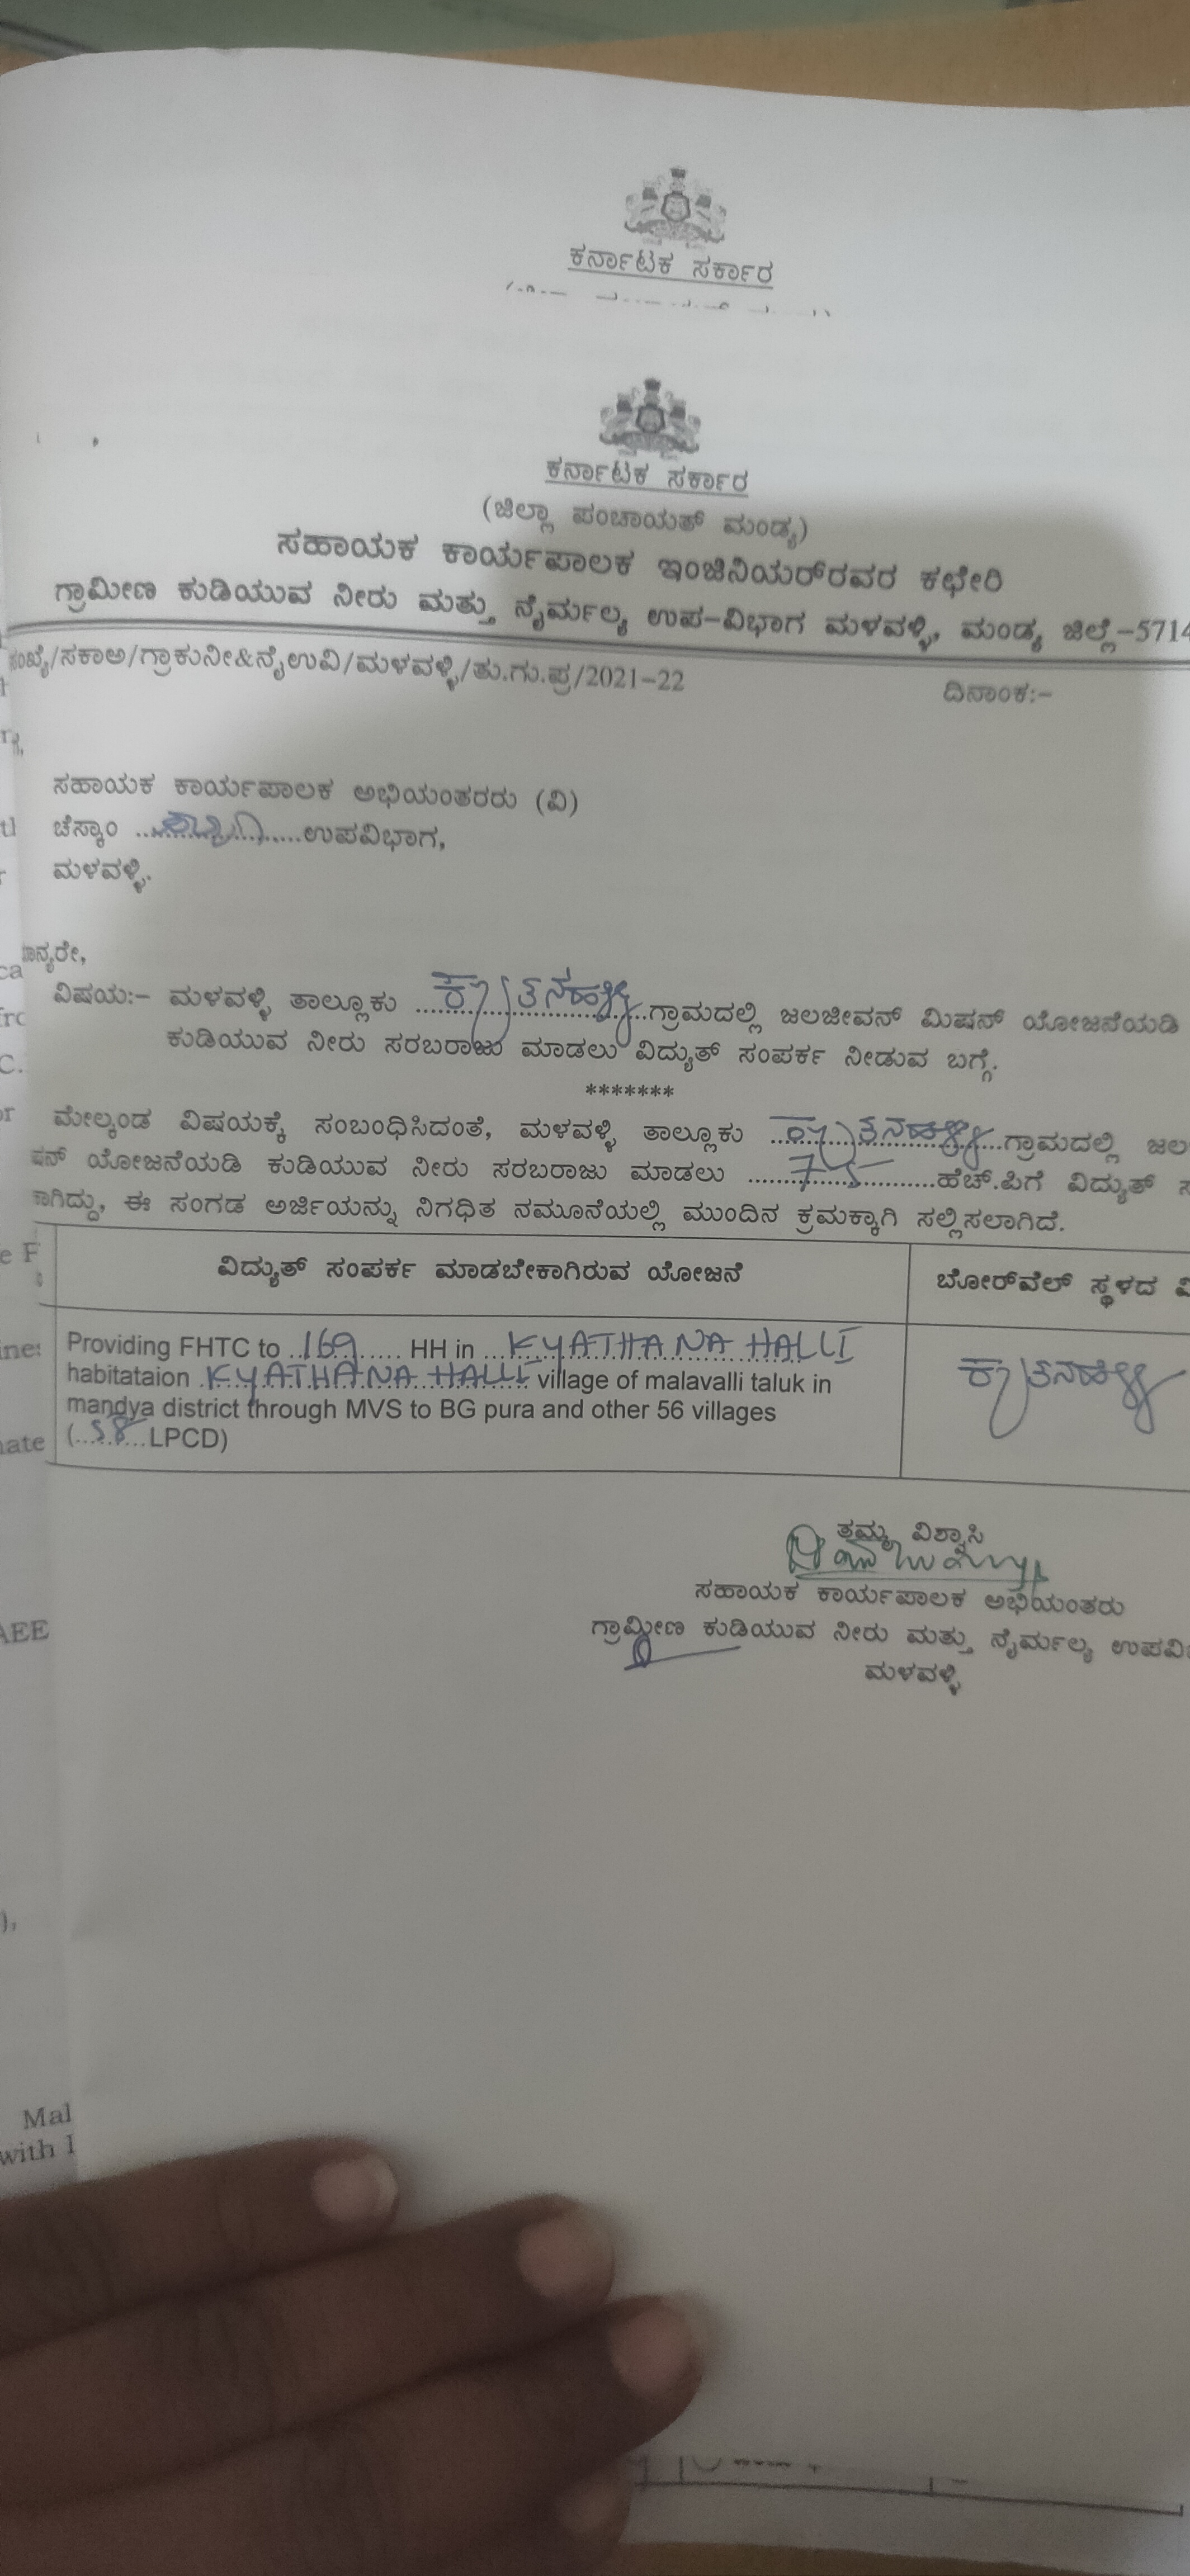 ಕರ್ನಾಟಕ ಸರ್ಕಾರ
ಕರ್ನಾಟಕ ಸರ್ಕಾರ
(ಜಿಲ್ಲಾ ಪಂಚಾಯತ್ ಮಂಡ್ಯ)
ಸಹಾಯಕ ಕಾರ್ಯಪಾಲಕ ಇಂಜಿನಿಯರ್‌ರವರ ಕಛೇರಿ
ಗ್ರಾಮೀಣ ಕುಡಿಯುವ ನೀರು ಮತ್ತು ನೈರ್ಮಲ್ಯ ಉಪ-ವಿಭಾಗ ಮಳವಳ್ಳಿ, ಮಂಡ್ಯ ಜಿಲ್ಲೆ-5714
ಸಂಖ್ಯೆ/ಸಕಾಅ/ಗ್ರಾಕುನೀ&ನೈಉವಿ/ಮಳವಳ್ಳಿ/ತು.ಗು.ಪ್ರ/2021-22
ದಿನಾಂಕ:-
ಸಹಾಯಕ ಕಾರ್ಯಪಾಲಕ ಅಭಿಯಂತರರು (ವಿ)
ಚೆಸ್ಕಾಂ ......ಉಪವಿಭಾಗ,
ಮಳವಳ್ಳಿ.
ಮಾನ್ಯರೇ,
ವಿಷಯ:- ಮಳವಳ್ಳಿ ತಾಲ್ಲೂಕು ..ಕ್ಯಾತನಹಳ್ಳಿ..ಗ್ರಾಮದಲ್ಲಿ ಜಲಜೀವನ್ ಮಿಷನ್ ಯೋಜನೆಯಡಿ
ಕುಡಿಯುವ ನೀರು ಸರಬರಾಜು ಮಾಡಲು ವಿದ್ಯುತ್ ಸಂಪರ್ಕ ನೀಡುವ ಬಗ್ಗೆ.
*******
ಮೇಲ್ಕಂಡ ವಿಷಯಕ್ಕೆ ಸಂಬಂಧಿಸಿದಂತೆ, ಮಳವಳ್ಳಿ ತಾಲ್ಲೂಕು ..ಕ್ಯಾತನಹಳ್ಳಿ..ಗ್ರಾಮದಲ್ಲಿ ಜಲ
ಷನ್ ಯೋಜನೆಯಡಿ ಕುಡಿಯುವ ನೀರು ಸರಬರಾಜು ಮಾಡಲು ....7.5....ಹೆಚ್.ಪಿಗೆ ವಿದ್ಯುತ್ ಸ
ಕಾಗಿದ್ದು, ಈ ಸಂಗಡ ಅರ್ಜಿಯನ್ನು ನಿಗಧಿತ ನಮೂನೆಯಲ್ಲಿ ಮುಂದಿನ ಕ್ರಮಕ್ಕಾಗಿ ಸಲ್ಲಿಸಲಾಗಿದೆ.
ವಿದ್ಯುತ್ ಸಂಪರ್ಕ ಮಾಡಬೇಕಾಗಿರುವ ಯೋಜನೆ
ಬೋರ್‌ವೆಲ್ ಸ್ಥಳದ ವಿ
Providing FHTC to ..169...... HH in ...KYATHANA HALLI
habitataion .KYATHANA HALLI village of malavalli taluk in
mandya district through MVS to BG pura and other 56 villages
(...58...LPCD)
ಕ್ಯಾತನಹಳ್ಳಿ
ತಮ್ಮ ವಿಶ್ವಾಸಿ
ಸಹಾಯಕ ಕಾರ್ಯಪಾಲಕ ಅಭಿಯಂತರು
ಗ್ರಾಮೀಣ ಕುಡಿಯುವ ನೀರು ಮತ್ತು ನೈರ್ಮಲ್ಯ ಉಪವಿ
ಮಳವಳ್ಳಿ
AEE
Mal
with I